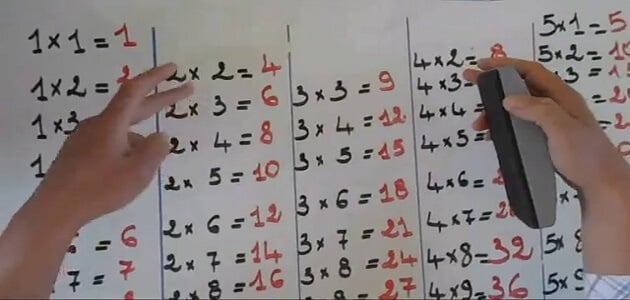 1 × 1 = 1
1 × 2 =
1 × 3
= 6
7 = 7
2 × 2 = 4
2 × 3 = 6
2 × 4 = 8
2 × 5 = 10
2 × 6 = 12
2 × 7 = 14
2 × 8 = 16
3 × 3 = 9
3 × 4 = 12
3 × 5 = 15
3 × 6 = 18
3 × 7 = 21
3 × 8 = 24
= 27
4 × 2 = 8
4 × 3 =
4 × 4 =
4 × 5 =
4 × 6 =
4 × 7 =
4 × 8 = 32
4 × 9 = 36
5 × 1 = 5
5 × 2 = 10
× 3 =
5 × 8
5 × 9